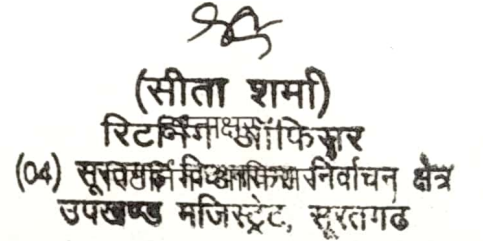 (सीता शर्मा)
रिटर्निंग ऑफिसर
(04) निर्वाचन क्षेत्र
उपखण्ड मजिस्ट्रेट, सूरतगढ